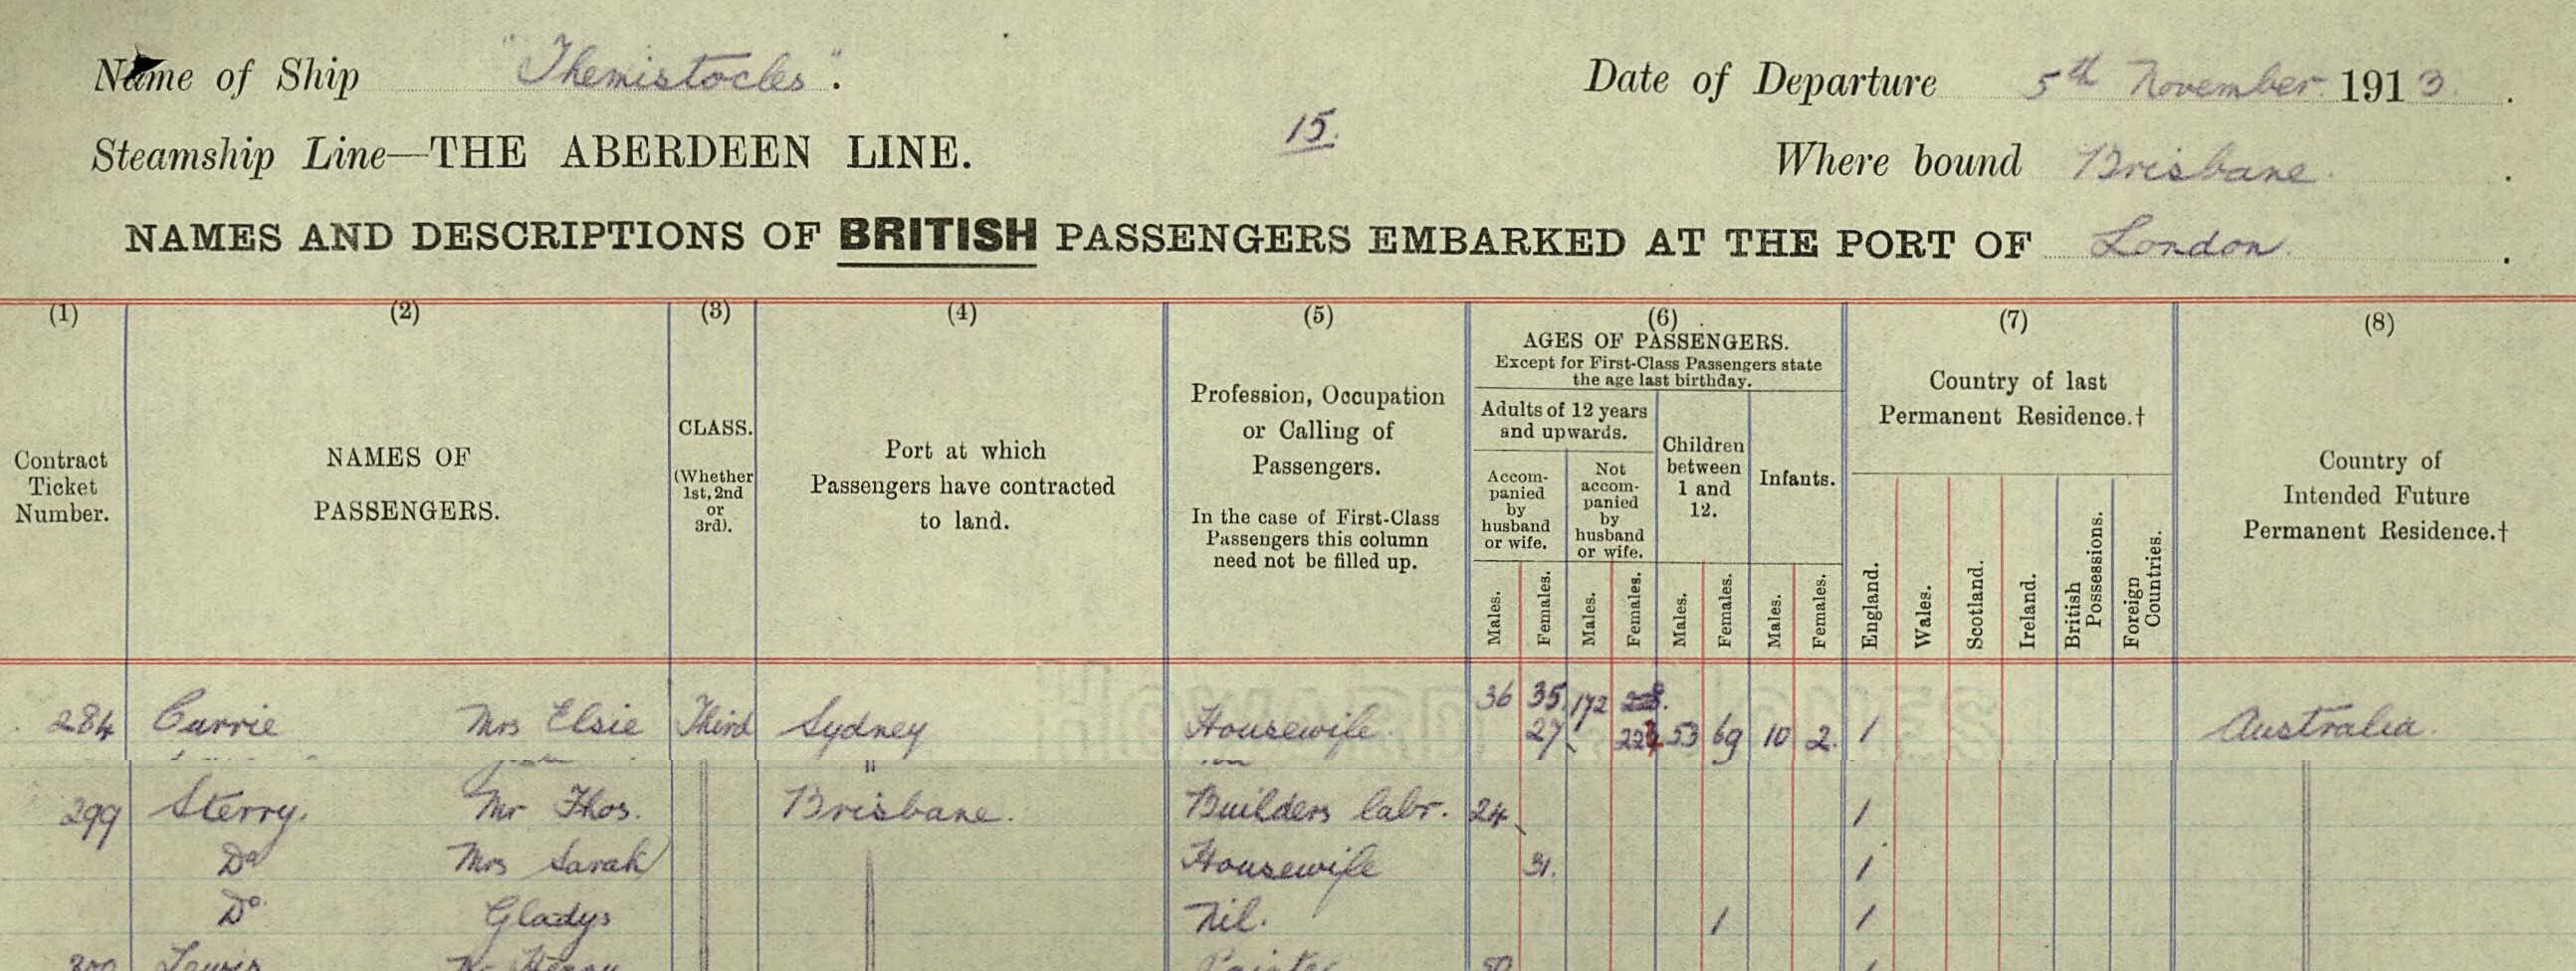 Name of Ship "Themistocles".
Date of Departure 5th November 1913.
15.
Steamship Line—THE ABERDEEN LINE.
Where bound Brisbane.
NAMES AND DESCRIPTIONS OF BRITISH PASSENGERS EMBARKED AT THE PORT OF London.
(1) (2) (3) (4) (5) (6) (7) (8)
Contract
Ticket
Number.
NAMES OF
PASSENGERS.
CLASS.
(Whether
1st, 2nd
or
3rd).
Port at which
Passengers have contracted
to land.
Profession, Occupation
or Calling of
Passengers.
In the case of First-Class
Passengers this column
need not be filled up.
AGES OF PASSENGERS.
Except for First-Class Passengers state
the age last birthday.
Adults of 12 years
and upwards.
Accom-
panied
by
husband
or wife.
Not
accom-
panied
by
husband
or wife.
Children
between
1 and
12.
Infants.
Males. Females. Males. Females. Males. Females. Males. Females.
Country of last
Permanent Residence.†
England. Wales. Scotland. Ireland. British Possessions. Foreign Countries.
Country of
Intended Future
Permanent Residence.†
36 35 172
284 Currie Mrs Elsie Third Sydney Housewife. 27 53 69 10 2. 1 Australia.
"
299 Sterry. Mr Thos. Brisbane. Builders labr. 24 1
Do Mrs Sarah Housewife 31. 1
Do Gladys Nil. 1 1
300 Lewis Mr Henry Painter 50